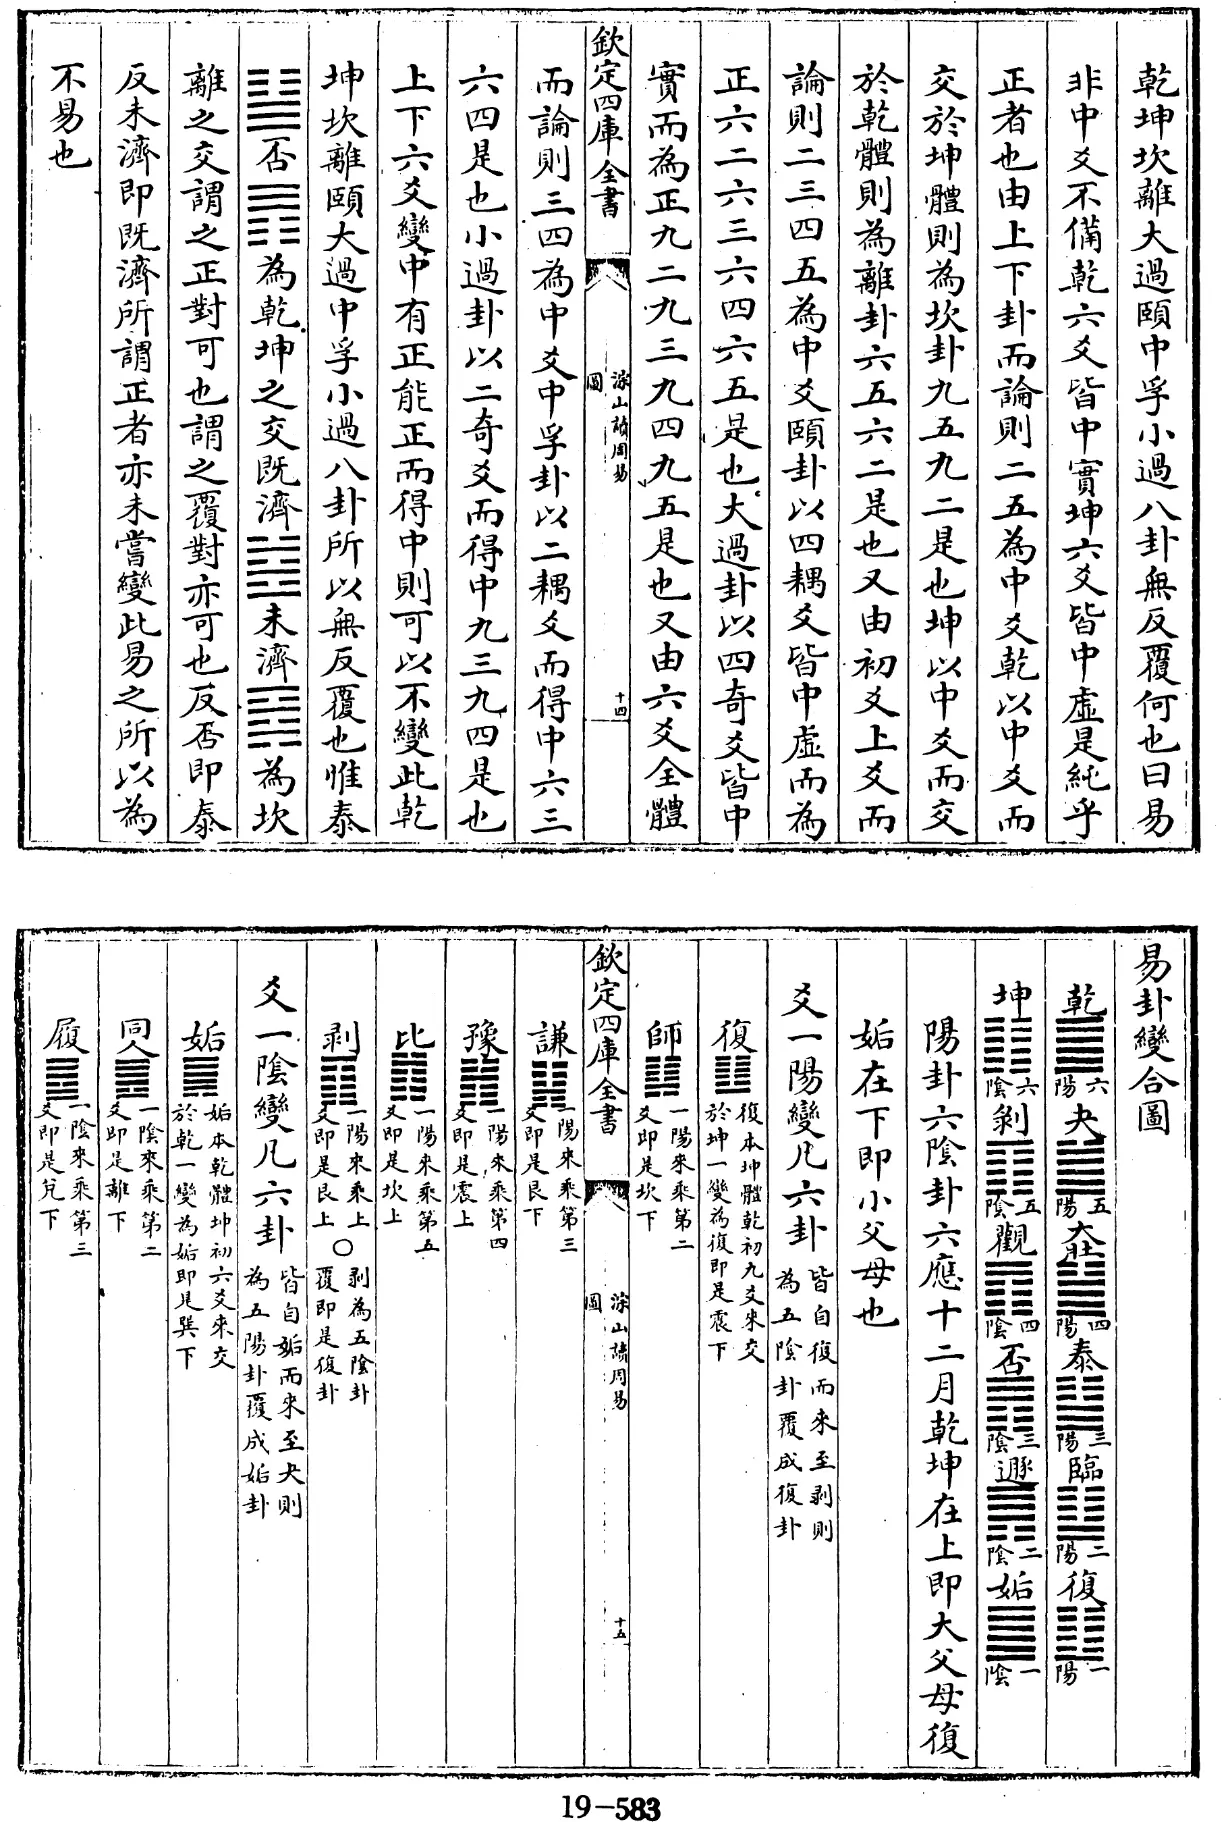 乾坤坎離大過頤中孚小過八卦無反覆何也曰易
非中爻不備乾六爻皆中實坤六爻皆中虛是純乎
正者也由上下卦而論則二五為中爻乾以中爻而
交於坤體則為坎卦九五九二是也坤以中爻而交
於乾體則為離卦六五六二是也又由初爻上爻而
論則二三四五為中爻頤卦以四耦爻皆中虛而為
正六二六三六四六五是也大過卦以四奇爻皆中
實而為正九二九三九四九五是也又由六爻全體
欽定四庫全書
淙山讀周易
圖
十四
而論則三四為中爻中孚卦以二耦爻而得中六三
六四是也小過卦以二奇爻而得中九三九四是也
上下六爻變中有正能正而得中則可以不變此乾
坤坎離頤大過中孚小過八卦所以無反覆也惟泰
䷊否䷋為乾坤之交既濟䷾未濟䷿為坎
離之交謂之正對可也謂之覆對亦可也反否即泰
反未濟即既濟所謂正者亦未嘗變此易之所以為
不易也
易卦變合圖
乾䷀六陽夬䷪五陽大壯䷡四陽泰䷊三陽臨䷒二陽復䷗一陽
坤䷁六陰剝䷖五陰觀䷓四陰否䷋三陰遯䷠二陰姤䷫一陰
陽卦六陰卦六應十二月乾坤在上即大父母復
姤在下即小父母也
爻一陽變凡六卦皆自復而來至剝則
為五陰卦覆成復卦
復䷗復本坤體乾初九爻來交
於坤一變為復即是震下
師䷆一陽來乘第二
爻即是坎下
欽定四庫全書
淙山讀周易
圖
十五
謙䷎一陽來乘第三
爻即是艮下
豫䷏一陽來乘第四
爻即是震上
比䷇一陽來乘第五
爻即是坎上
剝䷖一陽來乘上
爻即是艮上〇剝為五陰卦
覆即是復卦
爻一陰變凡六卦皆自姤而來至夬則
為五陽卦覆成姤卦
姤䷫姤本乾體坤初六爻來交
於乾一變為姤即是巽下
同人䷌一陰來乘第二
爻即是離下
履䷉一陰來乘第三
爻即是兌下
19-583